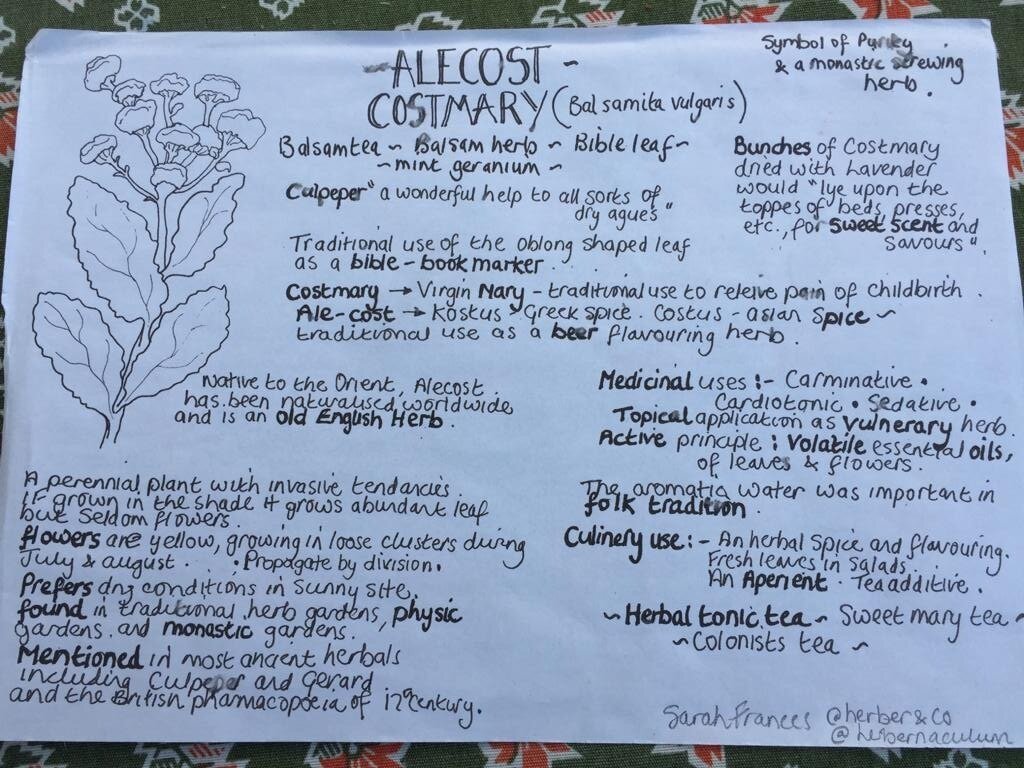 -ALECOST-
COSTMARY (Balsamita vulgaris)
Symbol of Purity
& a monastic strewing
herb.
Balsamtea ~ Balsam herb ~ Bible leaf ~
~ mint geranium ~
Culpeper "a wonderful help to all sorts of
dry agues"
Bunches of Costmary
dried with Lavender
would "lye upon the
toppes of beds, presses,
etc., for Sweet Scent and
Savours".
Traditional use of the oblong shaped leaf
as a bible-book marker.
Costmary → Virgin Mary - traditional use to releive pain of childbirth.
Ale-cost → Kostus Greek spice. Costus - asian Spice ~
traditional use as a beer flavouring herb.
Native to the Orient, Alecost
has been naturalised worldwide
and is an old English Herb.
Medicinal uses :- Carminative.
Cardiotonic • Sedative •
Topical application as vulnerary herb.
Active principle : Volatile essential oils,
of leaves & flowers.
The aromatic water was important in
folk tradition.
Culinery use :- An herbal Spice and flavouring.
Fresh leaves in Salads.
An Aperient. Tea additive.
~ Herbal tonic tea ~ Sweet mary tea ~
~ Colonists tea ~
A perennial plant with invasive tendancies.
If grown in the shade it grows abundant leaf
but Seldom flowers.
flowers are yellow, growing in loose clusters during
July & august. • Propogate by division.
Prefers dry conditions in Sunny site.
found in traditional herb gardens, physic
gardens. and monastic gardens.
Mentioned in most ancient herbals
including Culpeper and Gerard
and the British pharmacopoeia of 17th century.
Sarah Frances @herber&co
@herbernaculum